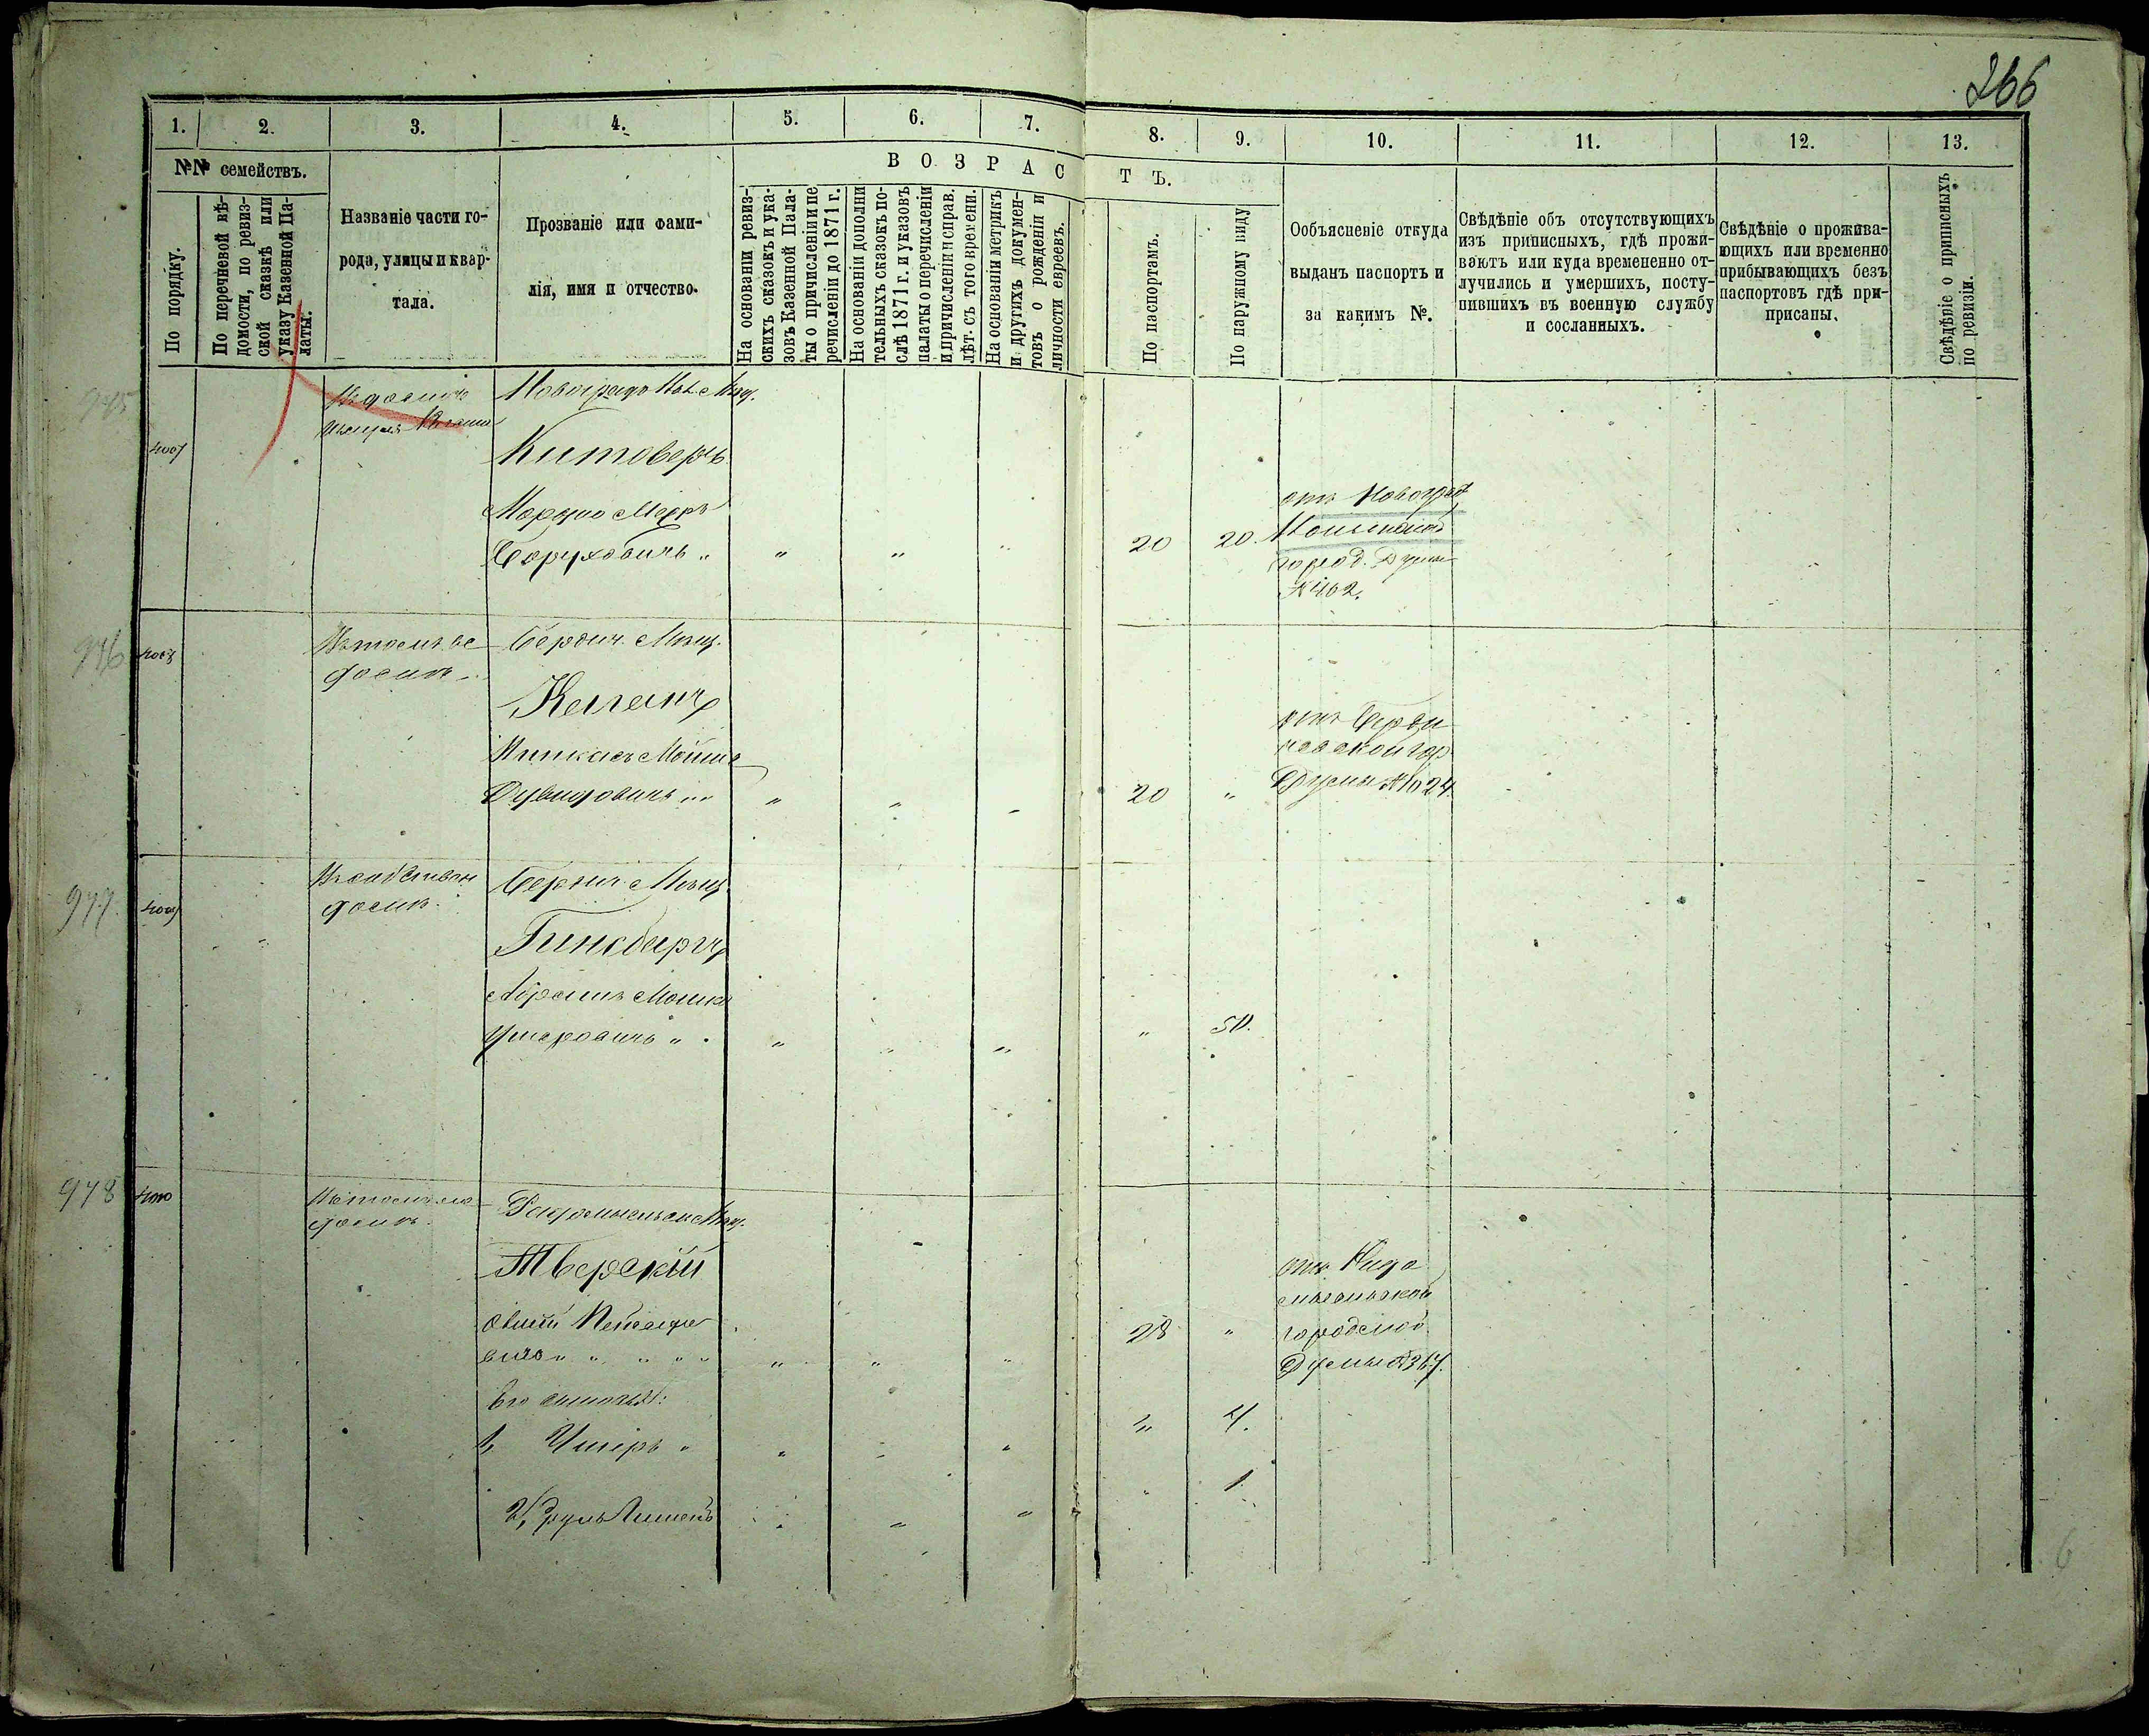 266
1. 2. 3. 4. 5. 6. 7. 8. 9. 10. 11. 12. 13.
№№ семействъ.
По порядку.
По перечневой вѣ-
домости, по ревиз-
ской сказкѣ или
указу Казенной Па-
латы.
Названіе части го-
рода, улицы и квар-
тала.
Прозваніе или фами-
лія, имя и отчество.
ВОЗРАСТЪ.
На основаніи ревиз-
скихъ сказокъ и ука-
зовъ Казенной Пала-
ты о причисленіи и пе
речисленіи до 1871 г.
На основаніи дополни
тельныхъ сказокъ по-
слѣ 1871 г. и указовъ
палаты о перечисленіи
и причисленіи и справ.
лѣт. съ того времени.
На основаніи метрикъ
и другихъ докумен-
товъ о рожденіи и
личности евреевъ.
По паспортамъ.
По паружному виду
Ообъясненіе откуда
выданъ паспортъ и
за какимъ №.
Свѣдѣніе объ отсутствующихъ
изъ приписныхъ, гдѣ прожи-
ваютъ или куда времененно от-
лучились и умершихъ, посту-
пившихъ въ военную службу
и сосланныхъ.
Свѣдѣніе о прожива-
ющихъ или временно
прибывающихъ безъ
паспортовъ гдѣ при-
писаны.
Свѣдѣніе о приписныхъ
по ревизіи.
975
4007
Новоградъ Вол. Мѣщ.
Китоверъ
Мордко Мееръ
Боруховичъ " " " "
20 20.
отъ Новоград
Волынской
город. Думы
№ 402.
976
4008
Въ томъ же
домѣ.
Бердич. Мѣщ.
Каганъ
Пинкасъ Мойше
Дувидовичъ " " " "
20 "
отъ Берди
чевской гор
Думы № 1024.
977.
4009
Въ собствен
домѣ.
Бердич. Мѣщ.
Гинсбургъ
Абрамъ Мошко
Ушеровичъ " " " "
" 50.
978
4010
Въ томъ же
домѣ.
Мѣщ.
Тверскій
вичъ " " " "
28 "
отъ
городской
Думы № 367.
Его сыновья:
1, Ушеръ " " " "
" 4.
2, Сруль " " "
" 1